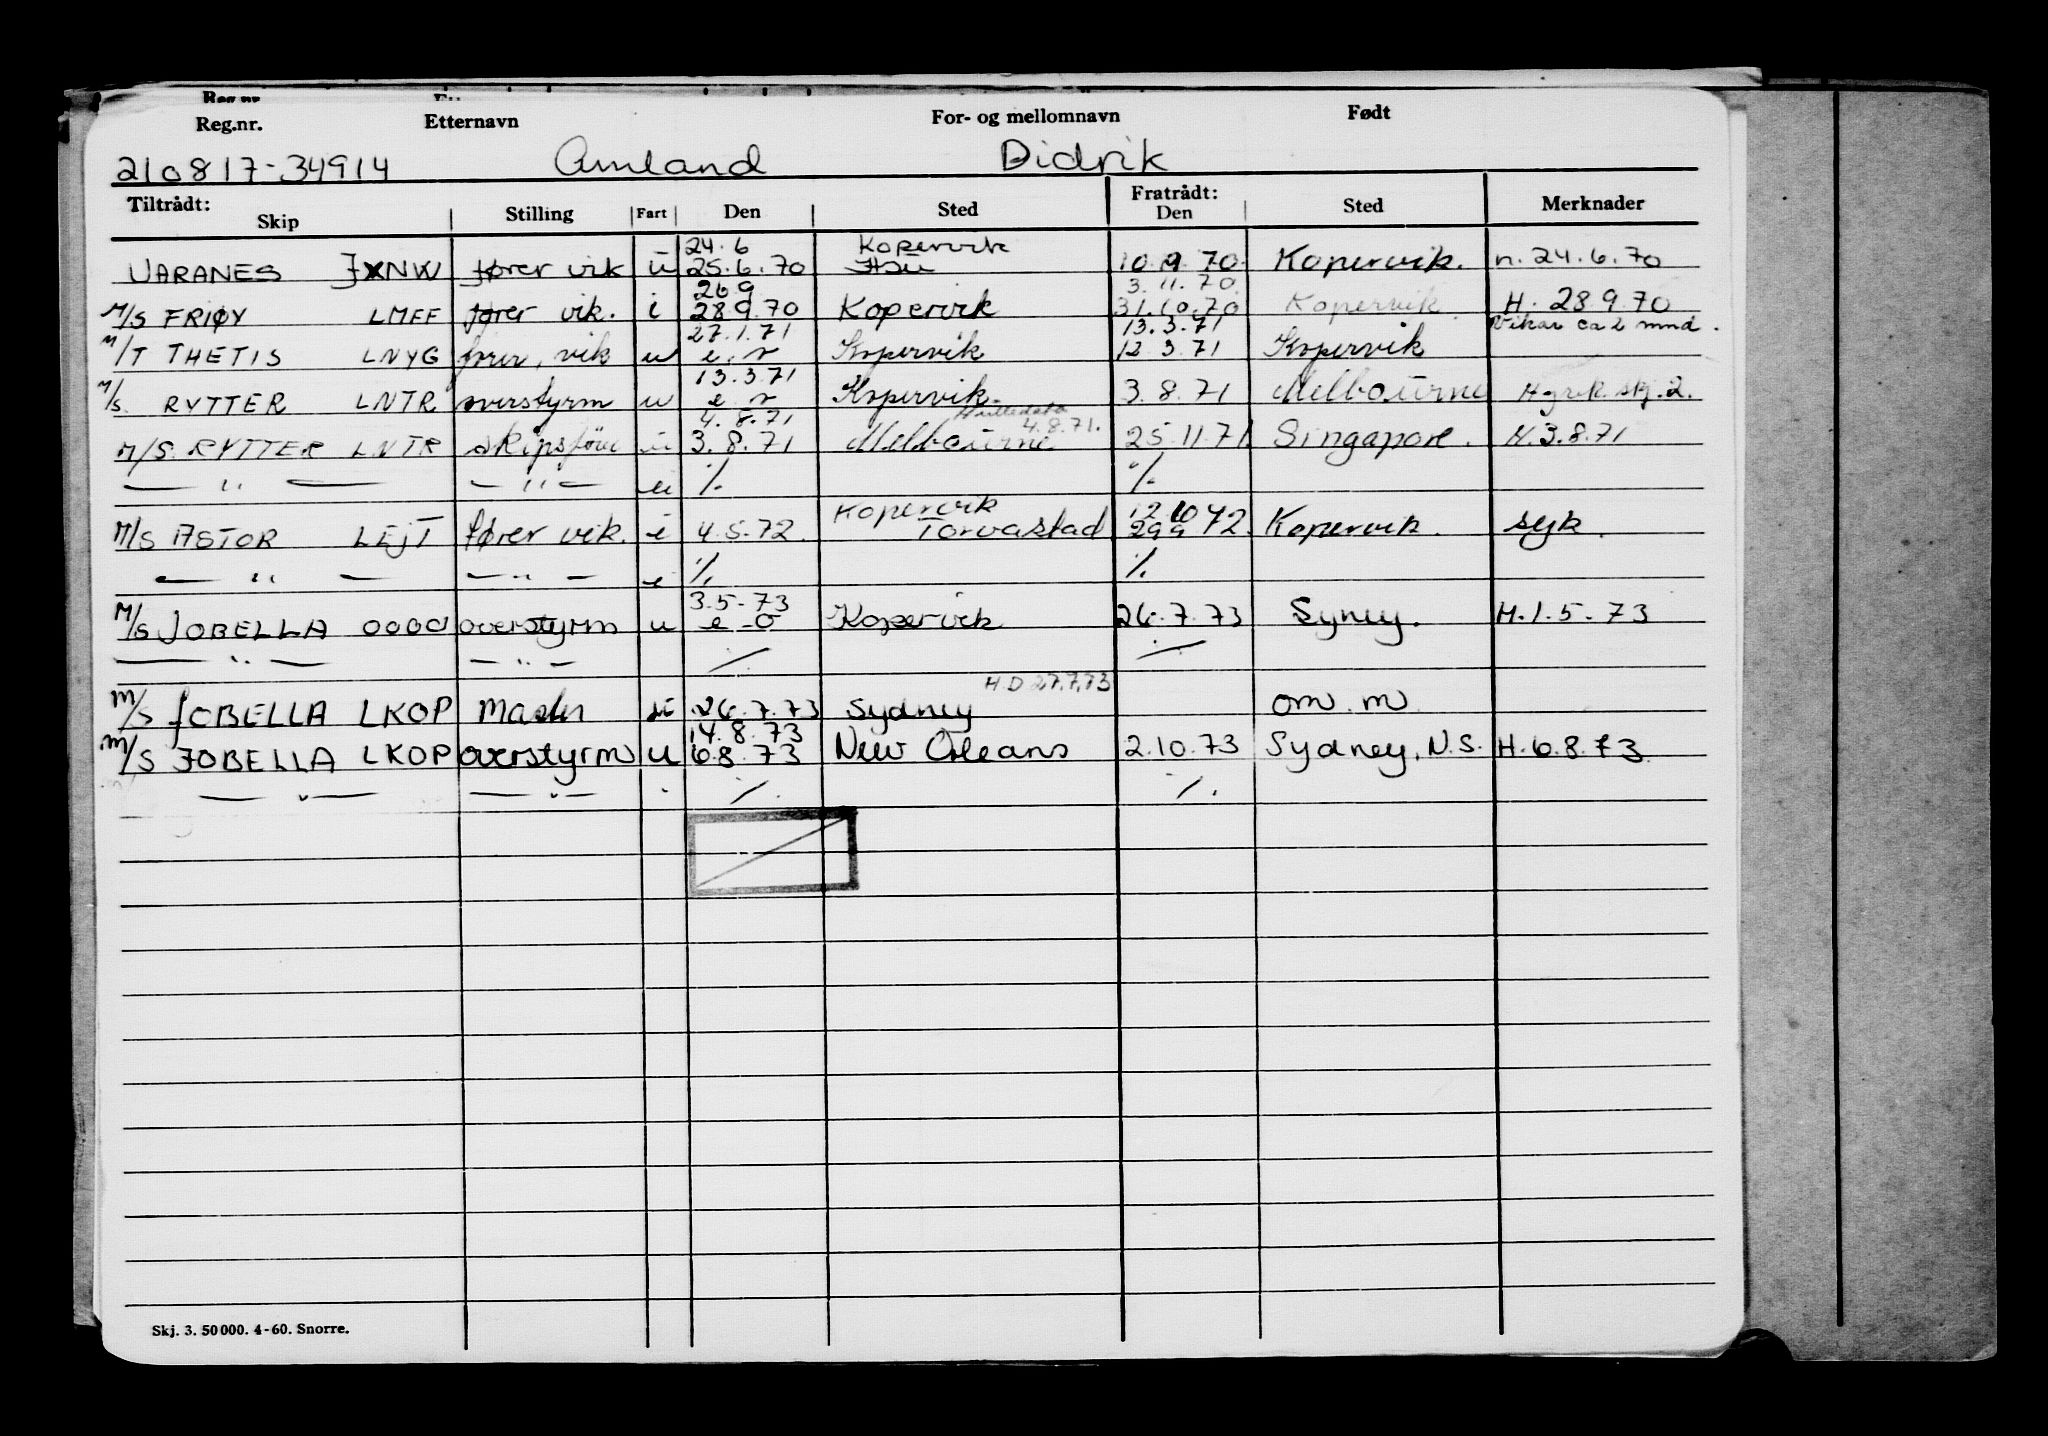 Reg.nr. Etternavn For- og mellomnavn Født
210817-34914 Amland Didrik
Tiltrådt: Fratrådt:
Skip Stilling Fart Den Sted Den Sted Merknader
24.6 Kopervik
VARANES JXNW fører vik u 25.6.70 10.9.70. Kopervik. n. 24.6.70
26.9 3.11.70
M/S FRIØY LMFF fører vik. i 28.9.70 Kopervik 31.10.70 Kopervik. H. 28.9.70
27.1.71 13.3.71 Vikar ca 2 mnd.
M/T THETIS LNYG fører, vik u e. r Kopervik 12.3.71 Kopervik
13.3.71
M/S. RYTTER LNTR overstyrm u e r Kopervik. 3.8.71 Melbourne H grk. skj. 2.
4.8.71 4.8.71.
M/S. RYTTER LNTR skipsfører u 3.8.71 Melbourne 25.11.71 Singapore. H. 3.8.71
— " — — " — u ·/. ·/.
Kopervik 12.10
M/S ASTOR LEJT fører vik. i 4.5.72. Torvastad 29.9 72. Kopervik. syk.
— " — — " — i ·/. ·/.
3.5-73
M/S JOBELLA 0000 overstyrm u e - o Kopervik 26.7.73 Syney. H.1.5-73
— " — — " — ·/. ·/.
H.D 27.7.73
M/S JOBELLA LKOP Master u 26.7.73 Sydney om. m
14.8.73
M/S JOBELLA LKOP overstyrm u 6.8.73 New Orleans 2.10.73 Sydney, N.S. H. 6.8.73
— " — — " — ·/. ·/.
Skj. 3. 50 000. 4-60. Snorre.